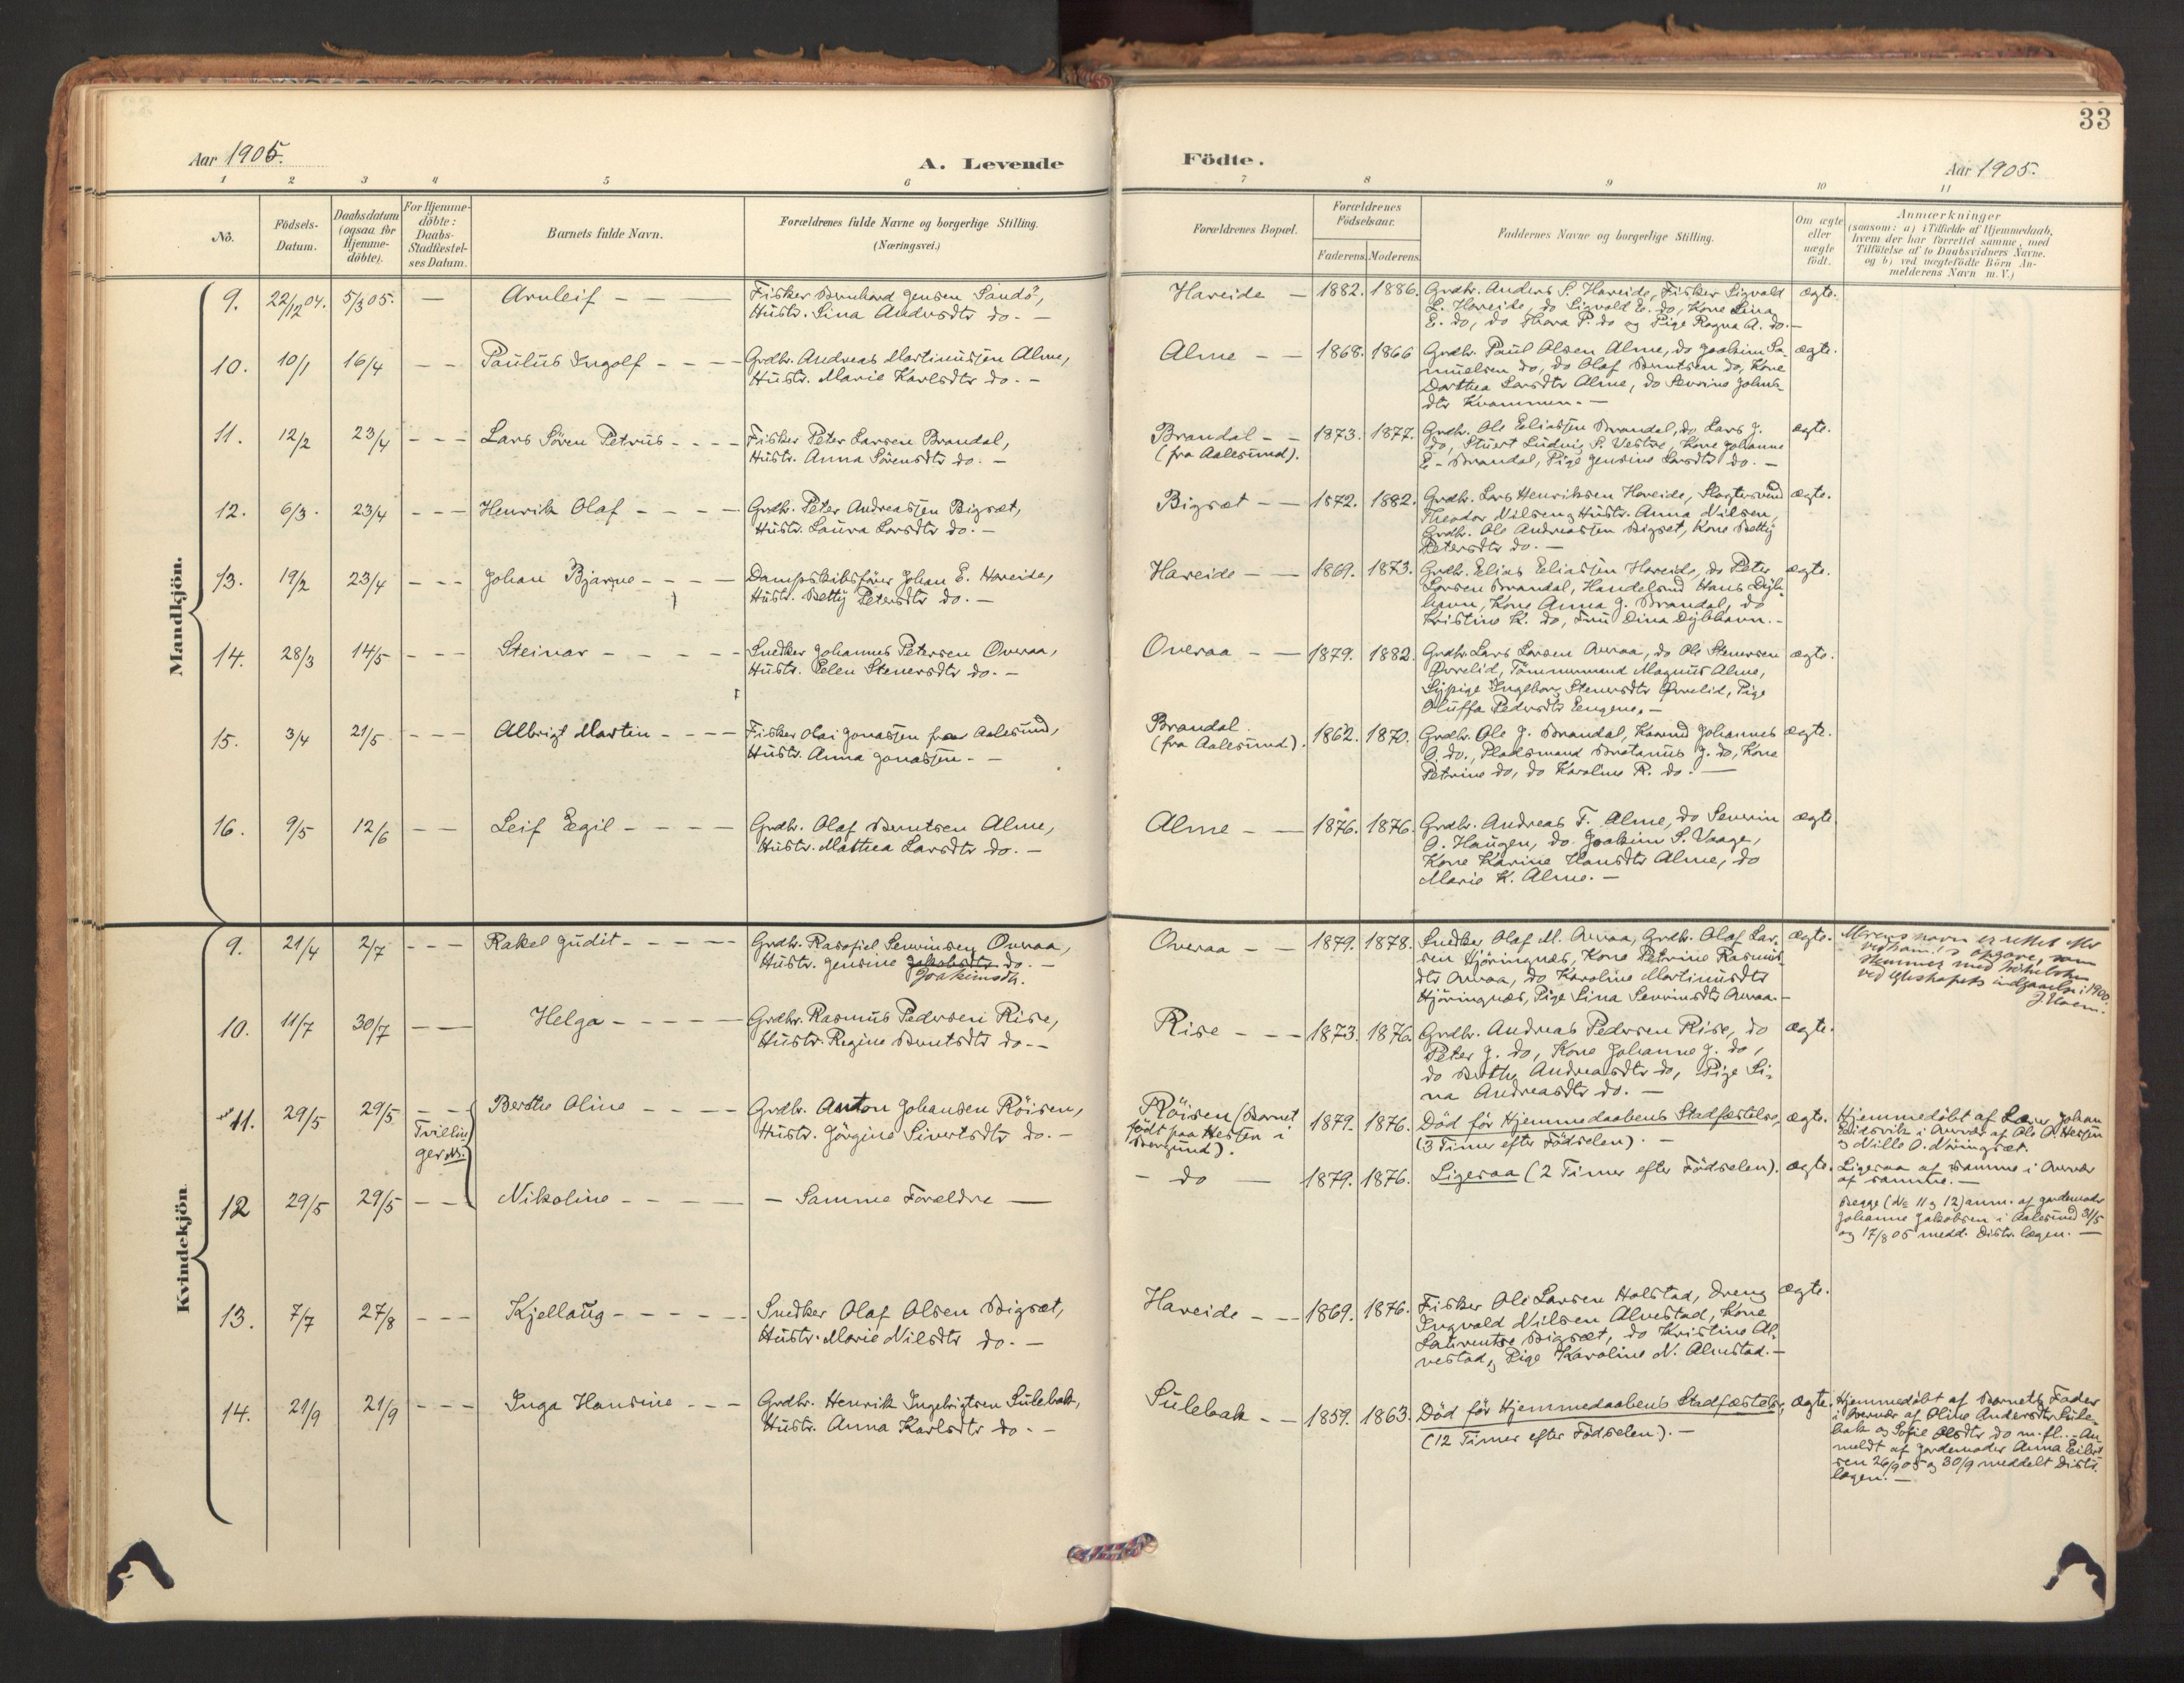 Aar 1905.
A. Levende
Födte.
Aar 1905.
33
1 2 3 4 5 6 7 8 9 10 11
No.
Födsels-
Datum.
Daabsdatum
(ogsaa for
Hjemme-
döbte).
For Hjemme-
döbte:
Daabs-
Stadfæstel-
ses Datum.
Barnets fulde Navn.
Forældrenes fulde Navne og borgerlige Stilling.
(Næringsvei.)
Forældrenes Bopæl.
Forældrenes
Födselsaar.
Faderens. Moderens.
Faddernes Navne og borgerlige Stilling.
Om ægte
eller
uægte
födt.
Anmærkninger
(saasom: a) i Tilfælde af Hjemmedaab,
hvem der har forrettet samme, med
Tilföielse af to Daabsvidners Navne.
og b) ved uægtefödte Börn An-
melderens Navn m. V.)
Mandkjön.
9. 22/12 04. 5/3 05. — Arnleif — — —
Fisker Bernhard Jensen Sandö,
Hustr. Sina Andersdtr do. —
Hareide — 1882. 1886.
Grdbr. Anders S. Hareide, Fisker Sigvald
L. Hareide, do Sigvald E. do, Kone Lina
E. do, do Thora P. do og Pige Ragna A. do. —
ægte.
10. 10/1 16/4 — — Paulus Ingolf — — —
Grdbr. Andreas Martinussen Alme,
Hustr. Marie Karlsdtr do. —
Alme — — 1868. 1866
Grdbr. Paul Olsen Alme, do Joakim Sa-
muelsen do, do Olaf Berntsen do, Kone
Dorthea Larsdtr Alme, do Severine Johns-
dtr Kvammen. —
ægte.
11. 12/2 23/4 — — — Lars Sören Petrus — — — —
Fisker Peter Larsen Brandal,
Hustr. Anna Sörensdtr do. —
Brandal — —
(fra Aalesund).
1873. 1877.
Grdbr. Ole Eliassen Brandal, do Lars J.
do, Stuert Ludvig S. Vestre, Kone Johanne
E - Brandal, Pige Jensine Larsdtr do. —
ægte.
12. 6/3. 23/4 — — — Henrik Olaf — — — —
Grdbr. Peter Andreassen Bigset,
Hustr. Laura Larsdtr do. —
Bigset — — 1872. 1882.
Grdbr. Lars Henriksen Hareide, Slagtersvend
Theodor Nilsen og Hustr. Anna Nilsen,
Grdbr. Ole Andreassen Bigset, Kone Betty
Petersdtr do. —
ægte.
13. 19/2 23/4 — — — Johan Bjarne — — — —
Dampskibsförer Johan E. Hareide,
Hustr. Betty Petersdtr do. —
Hareide — — 1869. 1873.
Grdbr. Elias Eliassen Hareide, do Peter
Larsen Brandal, Handelsmd Hans Dyb-
havn, Kone Anna J. Brandal, do
Kristine K. do, Fru Dina Dybhavn. —
ægte.
14. 28/3 14/5 — — — Steinar — — — — —
Snedker Johannes Petersen Overaa,
Hustr. Elen Stenersdtr do. —
Overaa — — 1879. 1882.
Grdbr. Lars Larsen Overaa, do Ole Stenersen
Örrelid, Tömmermand Magnus Alme,
Sypige Ingeborg Stenersdtr Örrelid, Pige
Oluffa Pedersdtr Eengene. —
ægte.
15. 3/4 21/5 — — — Albrigt Martin — — — —
Fisker Olai Jonassen fra Aalesund,
Hustr. Anna Jonassen. —
Brandal.
(fra Aalesund).
1862. 1870.
Grdbr. Ole J. Brandal, Kaarmd Johannes
O. do., Pladsmand Bertanus J. do, Kone
Petrine do, do Karoline R. do. —
ægte.
16. 9/5 12/6 — — Leif Egil — — — —
Grdbr. Olaf Berntsen Alme,
Hustr. Mathea Larsdtr do. —
Alme — — 1876. 1876.
Grdbr. Andreas T. Alme, do Severin
O. Haugen, do. Joakim S. Vaage,
Kone Karine Hansdtr Alme, do
Marie K. Alme. —
ægte
Kvindekjön.
9. 21/4 2/7 — — — Rakel Judit — — — — —
Grdbr. Rasofiel Severinsen Overaa,
Hustr. Jensine Jakobsdtr do. —
Joakimsdtr.
Overaa — — 1879. 1878.
Snedker Olaf M. Overaa, Grdbr. Olaf Lar-
sen Hjöringnæs, Kone Petrine Rasmus-
dtr Overaa, do Karoline Martinusdtr
Hjöringnæs, Pige Sina Severinsdtr Overaa. —
ægte.
Morens navn er rettet efter
opgave, som
stemmer med
ved egteskapets indgaaelse i 1900.
10. 11/7 30/7 — — Helga — — — — —
Grdbr. Rasmus Pedersen Rise,
Hustr. Regine Berntsdtr do. —
Rise — — — 1873. 1876.
Grdbr. Andreas Pedersen Rise, do
Peter J. do, Kone Johanne J. do,
do Berthe Andreasdtr do, Pige Si-
na Andreasdtr do. —
ægte.
11. 29/5 29/5 — — Berthe Oline — — — —
Tvillin
ger
Grdbr. Anton Johansen Röisen,
Hustr. Jörgine Sivertsdtr do. —
Röisen (Barnet
födt paa Hessen i
Borgund).
1879. 1876.
Död för Hjemmedaabens Stadfæstelse,
(3 Timer efter Födselen). —
ægte.
Hjemmedöbt af Lars Johan
Eidsvik i Overvær af Ole O. Hessen
og Nille O. Nöringset.
12 29/5 29/5 — — Nikoline — — — —
— Samme Forældre —
— do — 1879. 1876.
Ligesaa (2 Timer efter Födselen).
ægte.
Ligesaa af samme i Overvær
af samme. —
Begge (No 11 og 12) anm. af Jordemoder
Johanne Jakobsen i Aalesund 31/5
og 17/8 05 medd. Distr. lægen. —
13. 7/7 27/8 — — — Kjellaug — — — — —
Snedker Olaf Olsen Bigset,
Hustr. Marie Nilsdtr do. —
Hareide — — 1869. 1876.
Fisker Ole Larsen Holstad, Dreng
Ingvald Nilsen Alvestad, Kone
Laurentse Bigset, do Kristine Al-
vestad, Pige Karoline N. Alvestad. —
ægte.
14. 21/9 21/9 — — — Inga Hansine — — —
Grdbr. Henrik Ingebrigtsen Sulebak,
Hustr. Anna Karlsdtr do. —
Sulebak — — 1859. 1863.
Död för Hjemmedaabens Stadfæstelse,
(12 Timer efter Födselen). —
ægte.
Hjemmedöbt af Barnets Fader
i Overvær af Oline Andersdtr Sule-
bak og Sofie Olsdtr do m. fl. - An-
meldt af Jordemoder Anna Eilert-
sen 26/9 05 og 30/9 meddelt Distr.
lægen. —